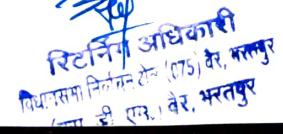 रिटर्निंग अधिकारी
विधानसभा निर्वाचन क्षेत्र (075) वैर, भरतपुर
डी एम.) वैर, भरतपुर